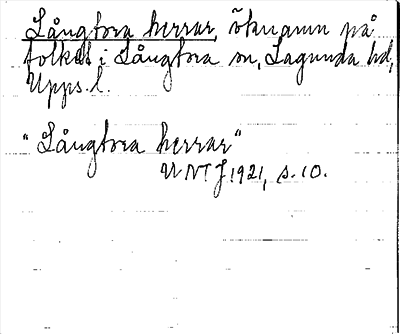 Långtora herrar, öknamn på
folket i Långtora sn, Lagunda hd,
Upps. l.
"Långtora herrar"
UNTJ 1921, s. 10.